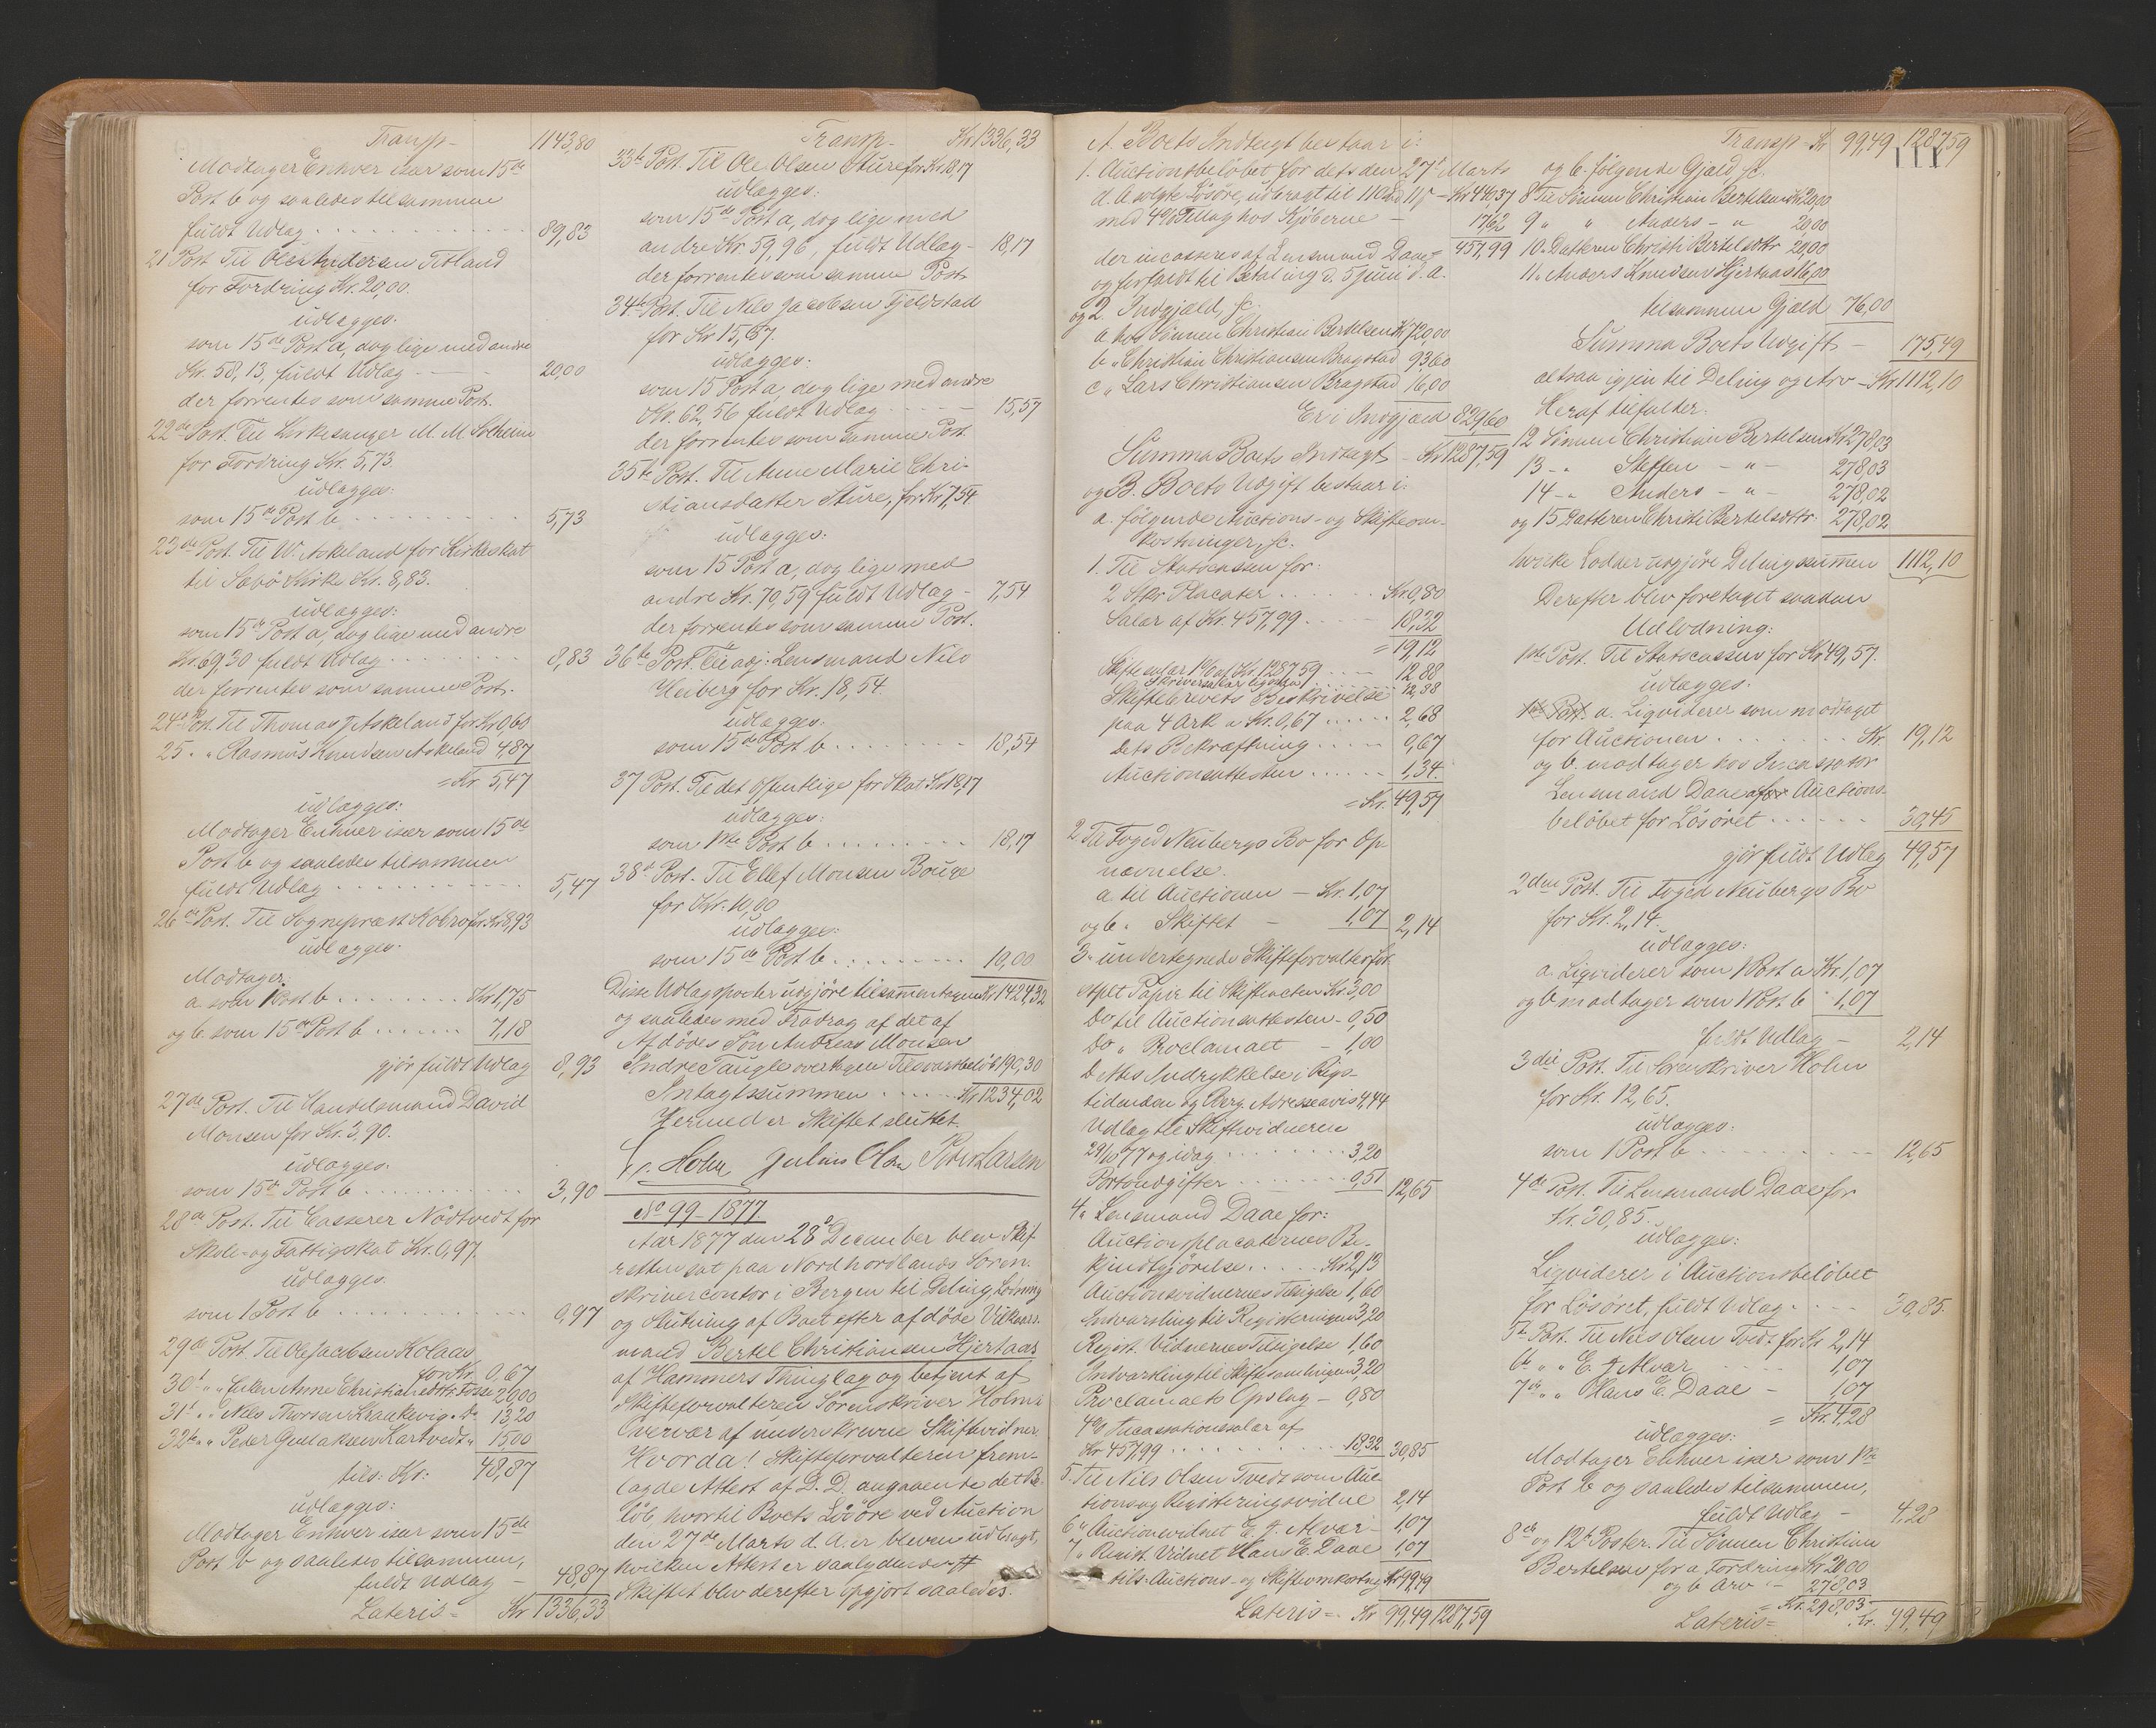 Transp - 1143,80
Modtager Enhver især som 15de
Post b og saaledes tilsammen
fuldt Udlag 89,83
21 Post Til Ole Andersen Titland
for Fordring Kr. 20,00.
udlægges:
som 15de Post a, dog lige med andre
Kr. 58,13, fuldt Udlæg - 20,00
der forrentes som samme Post.
22de Post. Til Kirkesanger M. M. Solheim
for Fordring Kr. 5,73.
udlægges:
som 15de Post b 5,73
23de Post. Til W. Askeland for Kirkeskat
til Sæbö Kirke Kr. 8,83.
udlægges:
som 15de Post a, dog lige med andre
Kr. 69,30 fuldt Udlag 8,83
der forrentes som samme Post.
24de Post. Til Thomas J. Askeland for Kr. 0,60
25. " Rasmus Knudsen Askeland 4,87
= Kr. 5,47
udlægges:
Modtager Enhver især som 15de
Post b og saaledes tilsammen
fuldt Udlag 5,47
26de Post. Til Sognepræst Kobro for Kr. 8,93
udlægges:
Modtager:
a. som 1 Post b Kr. 1,75
og b. som 15de Post b 7,18
gjör fuldt Udlag 8,93
27de Post. Til Handelsmand David
Monsen for Kr. 3,90.
udlægges:
som 15de Post b 3,90
28de Post. Til Casserer Nödtvedt for
Skole- og Fattigskat Kr. 0,97.
udlægges:
som 1 Post b 0,97
29de Post. Til Ole Jacobsen Kolaas
for Kr. 0,67
30te " " Enken Anne Christiansdtr Fosse 20,00
31te " " Nils Thorsen Kraakevig " Do 13,20
32te " " Peder Gullaksen Kartvedt " 15,00
tils: Kr: 48,87
udlægges:
Modtager Enhver især som 15de
Post b og saaledes tilsammen,
fuldt Udlag - 48,87
Lateris = Kr 1336,33
Transp - Kr. 1336,33
33te Post. Til Ole Olsen Sture for Kr. 18,17
udlægges:
som 15de Post a, dog lige med
andre Kr. 59,96, fuldt Udlag - 18,17
der forrentes som samme Post
34te Post. Til Nils Jacobsen Fjeldstad
for Kr 15,57.
udlægges:
som 15 Post a, dog lige med andre
Kr. 62,56 fuldt Udlag 15,57
der forrentes som samme Post.
35te Post. Til Anne Marie Chri-
stiansdatter Sture, for Kr 7,54
udlægges:
som 15 Post a, dog lige med
andre Kr. 70,59 fuldt Udlag - 7,54
der forrentes som samme Post.
36te Post. Til adj: Lensmand Nils
Heiberg for Kr. 18,54.
udlægges:
som 15de Post b 18,54
37 Post. Til det offentlige for Skat Kr. 18,17
udlægges:
som 1ste Post b 18,17
38te Post. Til Ellef Monsen Bouge
for Kr. 10,00
udlægges:
som 15de Post b 10,00
Disse Udlagsposter udgjöre tilsammentagne Kr 1424,32
og saaledes med Fradrag af det af
Afdödes Sön Andreas Monsen
Indre Taugle overtagne Tilsvarsbelöb 190,30
Indtagtssummen Kr 1234,02
Hermed er Skiftet sluttet.
Fr. Holm Julius Olsen Peder Larsen
No 99 - 1877.
Aar 1877 den 28de December blev Skif-
teretten sat paa Nordhordlands Soren-
skrivercontor i Bergen til Deling Lodning
og Slutning af Boet efter afdöde Vilkaars-
mand Bertel Christiansen Hjertaas
af Hammers Thinglag og betjent af
Skifteforvalteren Sorenskriver Holm i
Overvær af underskrevne Skiftevidner.
Hvorda! Skifteforvalteren frem-
lagde Attest af D. D. angaaende det Be-
löb, hvortil Boets Lösöre ved Auction
den 27de Marts d. A. er bleven udbragt,
hvilken Attest er saalydende #
Skiftet blev derefter opgjort saaledes.
A. Boets Indtægt bestaar i:
1. Auctionsbelöbet for det den 27de Marts
d. A. solgte Lösöre, udbragt til - Kr 440,37
med 4% Tillæg hos Kjöberne - 17,62
457,99
der incasseres af Lensmand Daae
og forfaldt til Betaling d. 5 Juni d. A.
og 2. Indgjæld, sc.
a hos Sönnen Christian Bertelsen Kr 720,00
b " Christian Christiansen Bragstad 93,60
c " Lars Christiansen Bragstad 16,00
Er i Indgjæld 829,60
Summa Boets Indtægt - Kr 1287,59
og B. Boets Udgift bestaar i:
a. fölgende Auctions- og Skifteom-
kostninger, sc.
1. Til Statscassen for:
2 Stkr Placater Kr. 0,80
Salær af Kr. 457,99 18,32
= 19,12
Skiftesalær 1% af Kr. 1287,59 12,88
Skriversalær ligesaa 12,88
Skiftebrevets Beskrivelse
paa 4 Ark a Kr. 0,67 2,68
dets Bekræftning 0,67
Auctionsattesten 1,34
= Kr. 49,57
2. Til Foged Neubergs Bo for Op-
nævnelse.
a. til Auctionen - Kr. 1,07
og b. " Skiftet - 1,07 2,14
3. undertegnede Skifteforvalter for
stplt Papir til Skifteacten Kr. 3,00
Do til Auctionsattesten - 0,50
Do " Proclamaet - 1,00
Dettes Indrykkelse i Rigs-
tidenden og Berg. Adresseavis 4,44
Udlæg til Skiftevidnerne
29/10 77 og idag 3,20
Portoudgifter 0,51 12,65
4. Lensmand Daae for:
Auctionsplacaternes Be-
kjendtgjörelse Kr 2,13
Auctionsvidnernes Tilsigelse 1,60
Indvarsling til Registreringen 3,20
Regist. Vidnernes Tilsigelse 1,60
Indvarsling til Skiftesamlingen 3,20
Proclamaets Opslag - 0,80
4% Incassationssalær af
Kr 457,99 18,32 30,85
5. Til Nils Olsen Tvedt som Auc-
tions og Registreringsvidne 2,14
6 " Auctionsvidnet E. J. Alvær - 1,07
7 " Regist. Vidnet Hans E. Daae 1,07
tils: Auctions- og Skifteomkostng Kr 99,49
Lateris = Kr 99,49 1287,59
111
Transp - Kr 99,49 1287,59
og b. fölgende Gjæld, sc.
8 Til Sönnen Christian Bertelsen Kr 20,00
9 " " Anders - " 20,00
10 " Datteren Christi Bertelsdttr 20,00
11 " Anders Knudsen Hjertaas 16,00
tilsammen Gjæld 76,00
Summa Boets Udgift - 175,49
altsaa igjen til Deling og Arv - Kr 1112,10
Heraf tilfalder:
12 Sönnen Christian Bertelsen Kr. 278,03
13 - " Steffen - " - 278,03
14 - " Anders - " - 278,02
og 15 Datteren Christi Bertelsdttr. 278,02
hvilke Lodder udgjöre Delingssummen 1112,10
Derefter blev foretaget saadan
Udlodning:
1ste Post. Til Statscassen for Kr 49,57.
udlægges:
1ste Post. a. Liqviderer som modtaget
for Auctionen Kr. 19,12
og b. modtager hos Incassator
Lensmand Daae af Auctions-
belöbet for Lösöret 30,45
gjör fuldt Udlæg 49,57
2den Post. Til Foged Neubergs Bo
for Kr. 2,14.
udlægges:
a. Liqviderer som 1 Post a Kr. 1,07
og b modtager som 1 Post b " 1,07
fuldt Udlag - 2,14
3die Post. Til Sorenskriver Holm
for Kr. 12,65.
udlægges:
som 1 Post b 12,65
4de Post. Til Lensmand Daae for
Kr. 30,85.
udlægges:
Liqviderer i Auctionsbelöbet
for Lösöret, fuldt Udlag 30,85.
5te Post. Til Nils Olsen Tvedt for Kr 2,14
6te " " E. J. Alvær 1,07
7de " " Hans E. Daae - 1,07
= Kr. 4,28
udlægges:
Modtager Enhver især som 1ste
Post b og saaledes tilsammen,
fuldt Udlag - 4,28
8de og 12te Poster. Til Sönnen Christian
Bertelsen for a Fordring Kr 20,00
og b Arv - 278,03
= Kr. 298,03
Lateris = Kr. 99,49